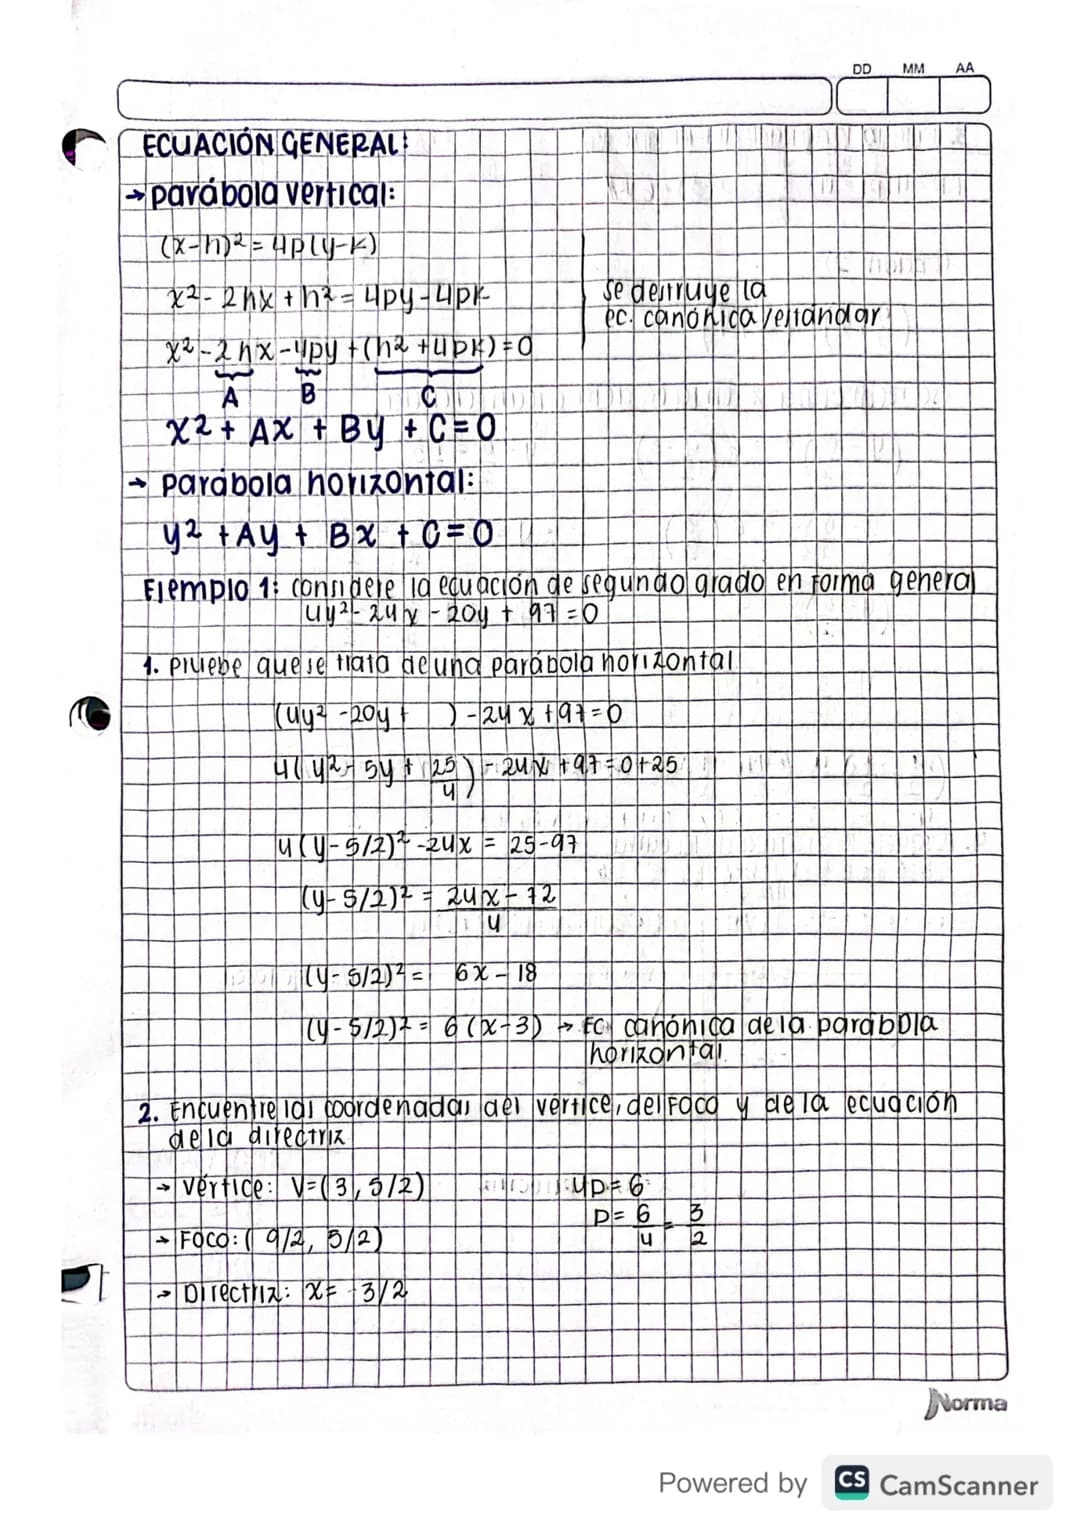 DD MM AA
ECUACIÓN GENERAL:
→ parábola vertical:
(x-h)² = 4p(y-k)
x² - 2hx + h² = 4py - 4pk
se destruye la
ec. canónica/estándar
x² - 2hx - 4py + (h² + 4pk) = 0
A B C
x² + Ax + By + C = 0
→ parábola horizontal:
y² + Ay + Bx + C = 0
Ejemplo 1: considere la ecuación de segundo grado en forma general
4y² - 24x - 20y + 97 = 0
1. Pruebe que se trata de una parábola horizontal
(4y² - 20y + ) - 24x + 97 = 0
4(y² - 5y + 25/4) - 24x + 97 = 0 + 25
4(y - 5/2)² - 24x = 25 - 97
(y - 5/2)² = 24x - 72
4
(y - 5/2)² = 6x - 18
(y - 5/2)² = 6(x-3) → EC. canónica de la parábola
horizontal.
2. Encuentre las coordenadas del vértice, del foco y de la ecuación
de la directriz
→ vértice: V=(3, 5/2) 4p = 6
p = 6/4 = 3/2
→ Foco: (9/2, 5/2)
→ Directriz: x = 3/2
Norma
Powered by CS CamScanner